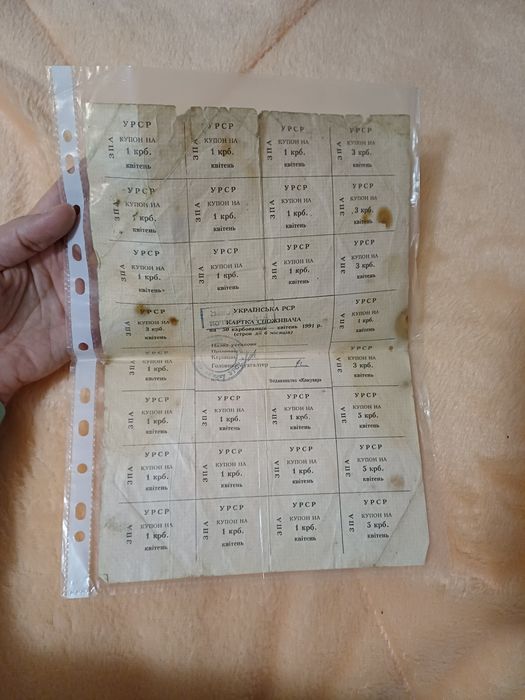 УРСР
ЗПА
КУПОН НА
1 крб.
квітень
УРСР
ЗПА
КУПОН НА
1 крб.
квітень
УРСР
ЗПА
КУПОН НА
1 крб.
квітень
УРСР
ЗПА
КУПОН НА
3 крб.
квітень
УРСР
ЗПА
КУПОН НА
1 крб.
квітень
УРСР
ЗПА
КУПОН НА
1 крб.
квітень
УРСР
ЗПА
КУПОН НА
1 крб.
квітень
УРСР
ЗПА
КУПОН НА
3 крб.
квітень
УРСР
ЗПА
КУПОН НА
1 крб.
квітень
УРСР
ЗПА
КУПОН НА
1 крб.
квітень
УРСР
ЗПА
КУПОН НА
1 крб.
квітень
УРСР
ЗПА
КУПОН НА
3 крб.
квітень
УРСР
ЗПА
КУПОН НА
3 крб.
квітень
УКРАЇНСЬКА РСР
КАРТКА СПОЖИВАЧА
на 50 карбованців — квітень 1991 р.
(строк дії 6 місяців)
Головний бухгалтер
УРСР
ЗПА
КУПОН НА
1 крб.
квітень
ЗПА
КУПОН НА
1 крб.
квітень
УРСР
ЗПА
КУПОН НА
3 крб.
квітень
УРСР
ЗПА
КУПОН НА
1 крб.
квітень
УРСР
ЗПА
КУПОН НА
1 крб.
квітень
УРСР
ЗПА
КУПОН НА
1 крб.
квітень
УРСР
ЗПА
КУПОН НА
5 крб.
квітень
УРСР
ЗПА
КУПОН НА
1 крб.
квітень
УРСР
ЗПА
КУПОН НА
1 крб.
квітень
УРСР
ЗПА
КУПОН НА
1 крб.
квітень
УРСР
ЗПА
КУПОН НА
5 крб.
квітень
УРСР
ЗПА
КУПОН НА
1 крб.
квітень
УРСР
ЗПА
КУПОН НА
1 крб.
квітень
УРСР
ЗПА
КУПОН НА
1 крб.
квітень
УРСР
ЗПА
КУПОН НА
5 крб.
квітень